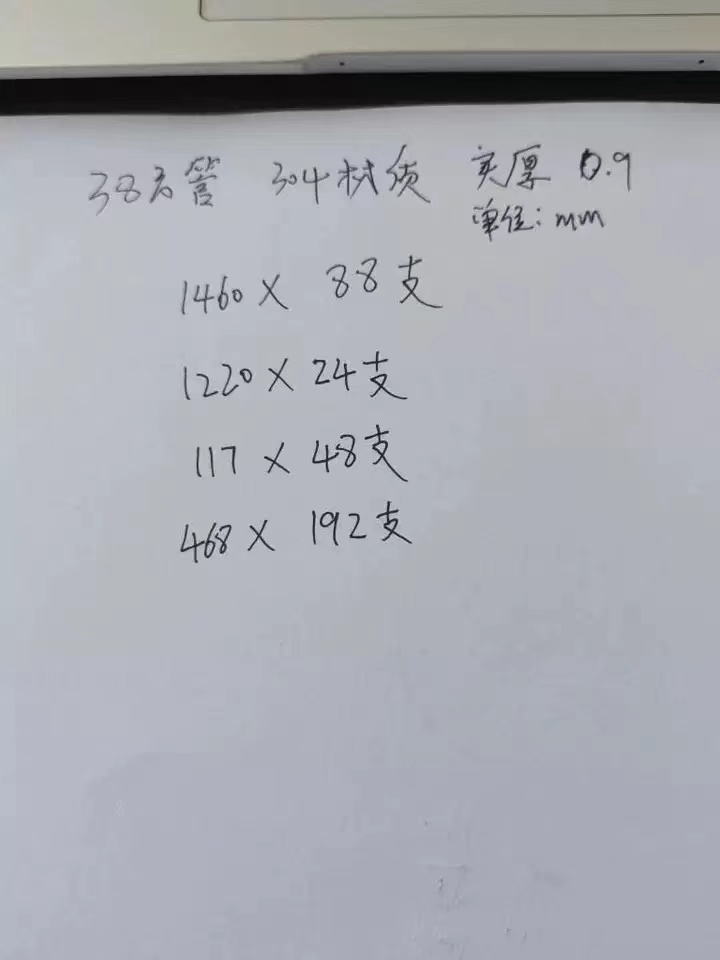 38方管 304材质 实厚 0.9
单位：mm
1460 X 88支
1220 X 24支
117 X 48支
468 X 192支